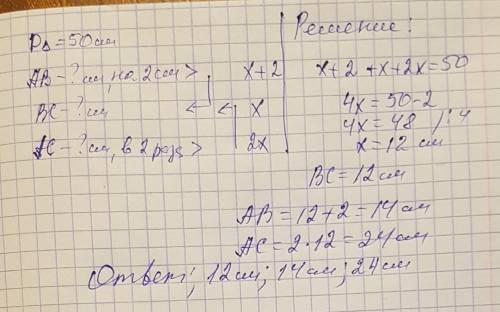 P∆ = 50 см
АВ - ? см, на 2 см > x+2
ВС - ? см x
АС - ? см, в 2 раза > 2x
Решение:
x+2+x+2x=50
4x = 50-2
4x = 48 /:4
x = 12 см
ВС = 12 см
АВ = 12+2 = 14 см
АС = 2·12 = 24 см
Ответ; 12 см; 14 см; 24 см